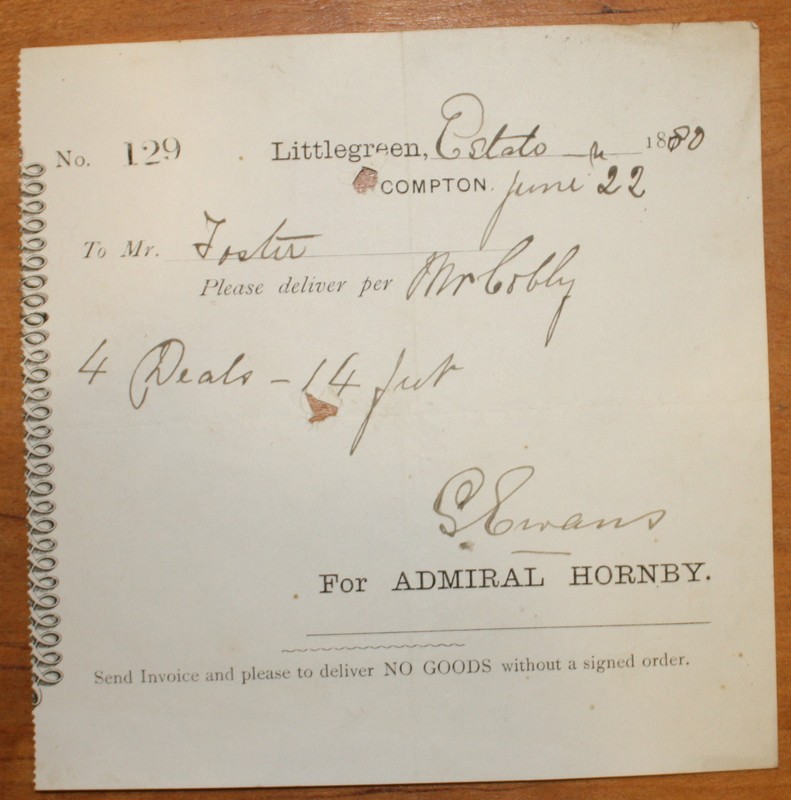 No. 129 Littlegreen, Estate 1880
COMPTON. June 22
To Mr. Foster
Please deliver per Mr Cobby
4 Deals - 14 feet
G Evans
For ADMIRAL HORNBY.
Send Invoice and please to deliver NO GOODS without a signed order.